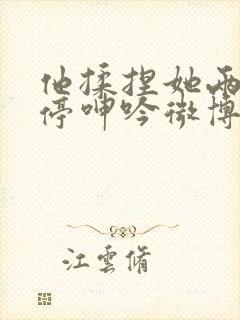 他揉捏她两
停呻吟微博
江云脩